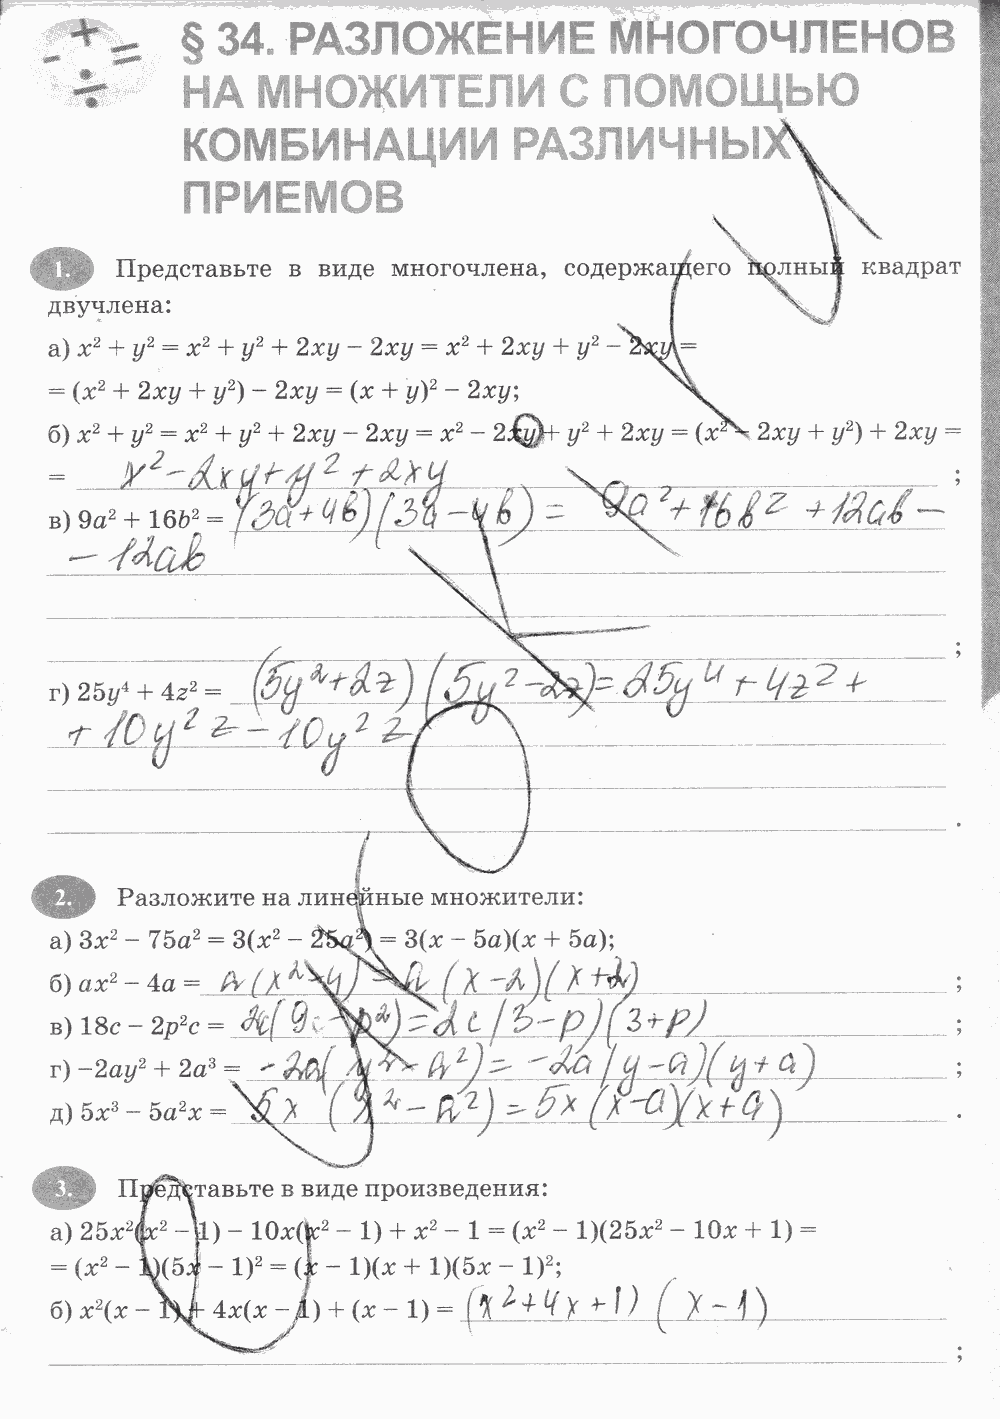 § 34. РАЗЛОЖЕНИЕ МНОГОЧЛЕНОВ
НА МНОЖИТЕЛИ С ПОМОЩЬЮ
КОМБИНАЦИИ РАЗЛИЧНЫХ
ПРИЕМОВ
1. Представьте в виде многочлена, содержащего полный квадрат
двучлена:
а) x² + y² = x² + y² + 2xy − 2xy = x² + 2xy + y² − 2xy =
= (x² + 2xy + y²) − 2xy = (x + y)² − 2xy;
б) x² + y² = x² + y² + 2xy − 2xy = x² − 2xy + y² + 2xy = (x² − 2xy + y²) + 2xy =
= x² − 2xy + y² + 2xy ;
в) 9a² + 16b² = (3a+4b)(3a−4b) = 9a² + 16b² + 12ab −
− 12ab
;
г) 25y⁴ + 4z² = (5y²+2z)(5y²−2z) = 25y⁴ + 4z² +
+ 10y²z − 10y²z
.
2. Разложите на линейные множители:
а) 3x² − 75a² = 3(x² − 25a²) = 3(x − 5a)(x + 5a);
б) ax² − 4a = a(x²−4) = a(x−2)(x+2) ;
в) 18c − 2p²c = 2c(9−p²) = 2c(3−p)(3+p) ;
г) −2ay² + 2a³ = −2a(y²−a²) = −2a(y−a)(y+a) ;
д) 5x³ − 5a²x = 5x(x²−a²) = 5x(x−a)(x+a) .
3. Представьте в виде произведения:
а) 25x²(x² − 1) − 10x(x² − 1) + x² − 1 = (x² − 1)(25x² − 10x + 1) =
= (x² − 1)(5x − 1)² = (x − 1)(x + 1)(5x − 1)²;
б) x²(x − 1) + 4x(x − 1) + (x − 1) = (x²+4x+1)(x−1)
;